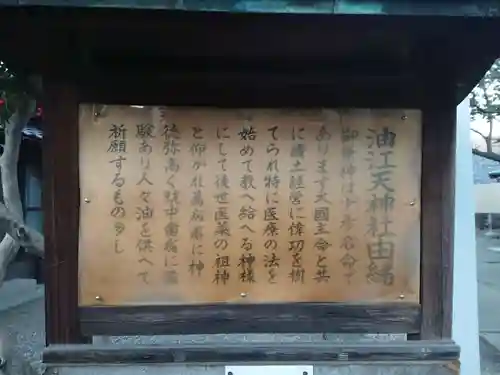 油江天神社由緒
御祭神は少彦名命で
あります大国主命と共
に國土経営に偉功を樹
てられ特に医療の法を
始めて教へ給へる神様
にして後世医薬の祖神
と仰がれ萬病に神
徳弥高く就中歯痛に霊
験あり人々油を供へて
祈願するもの多し